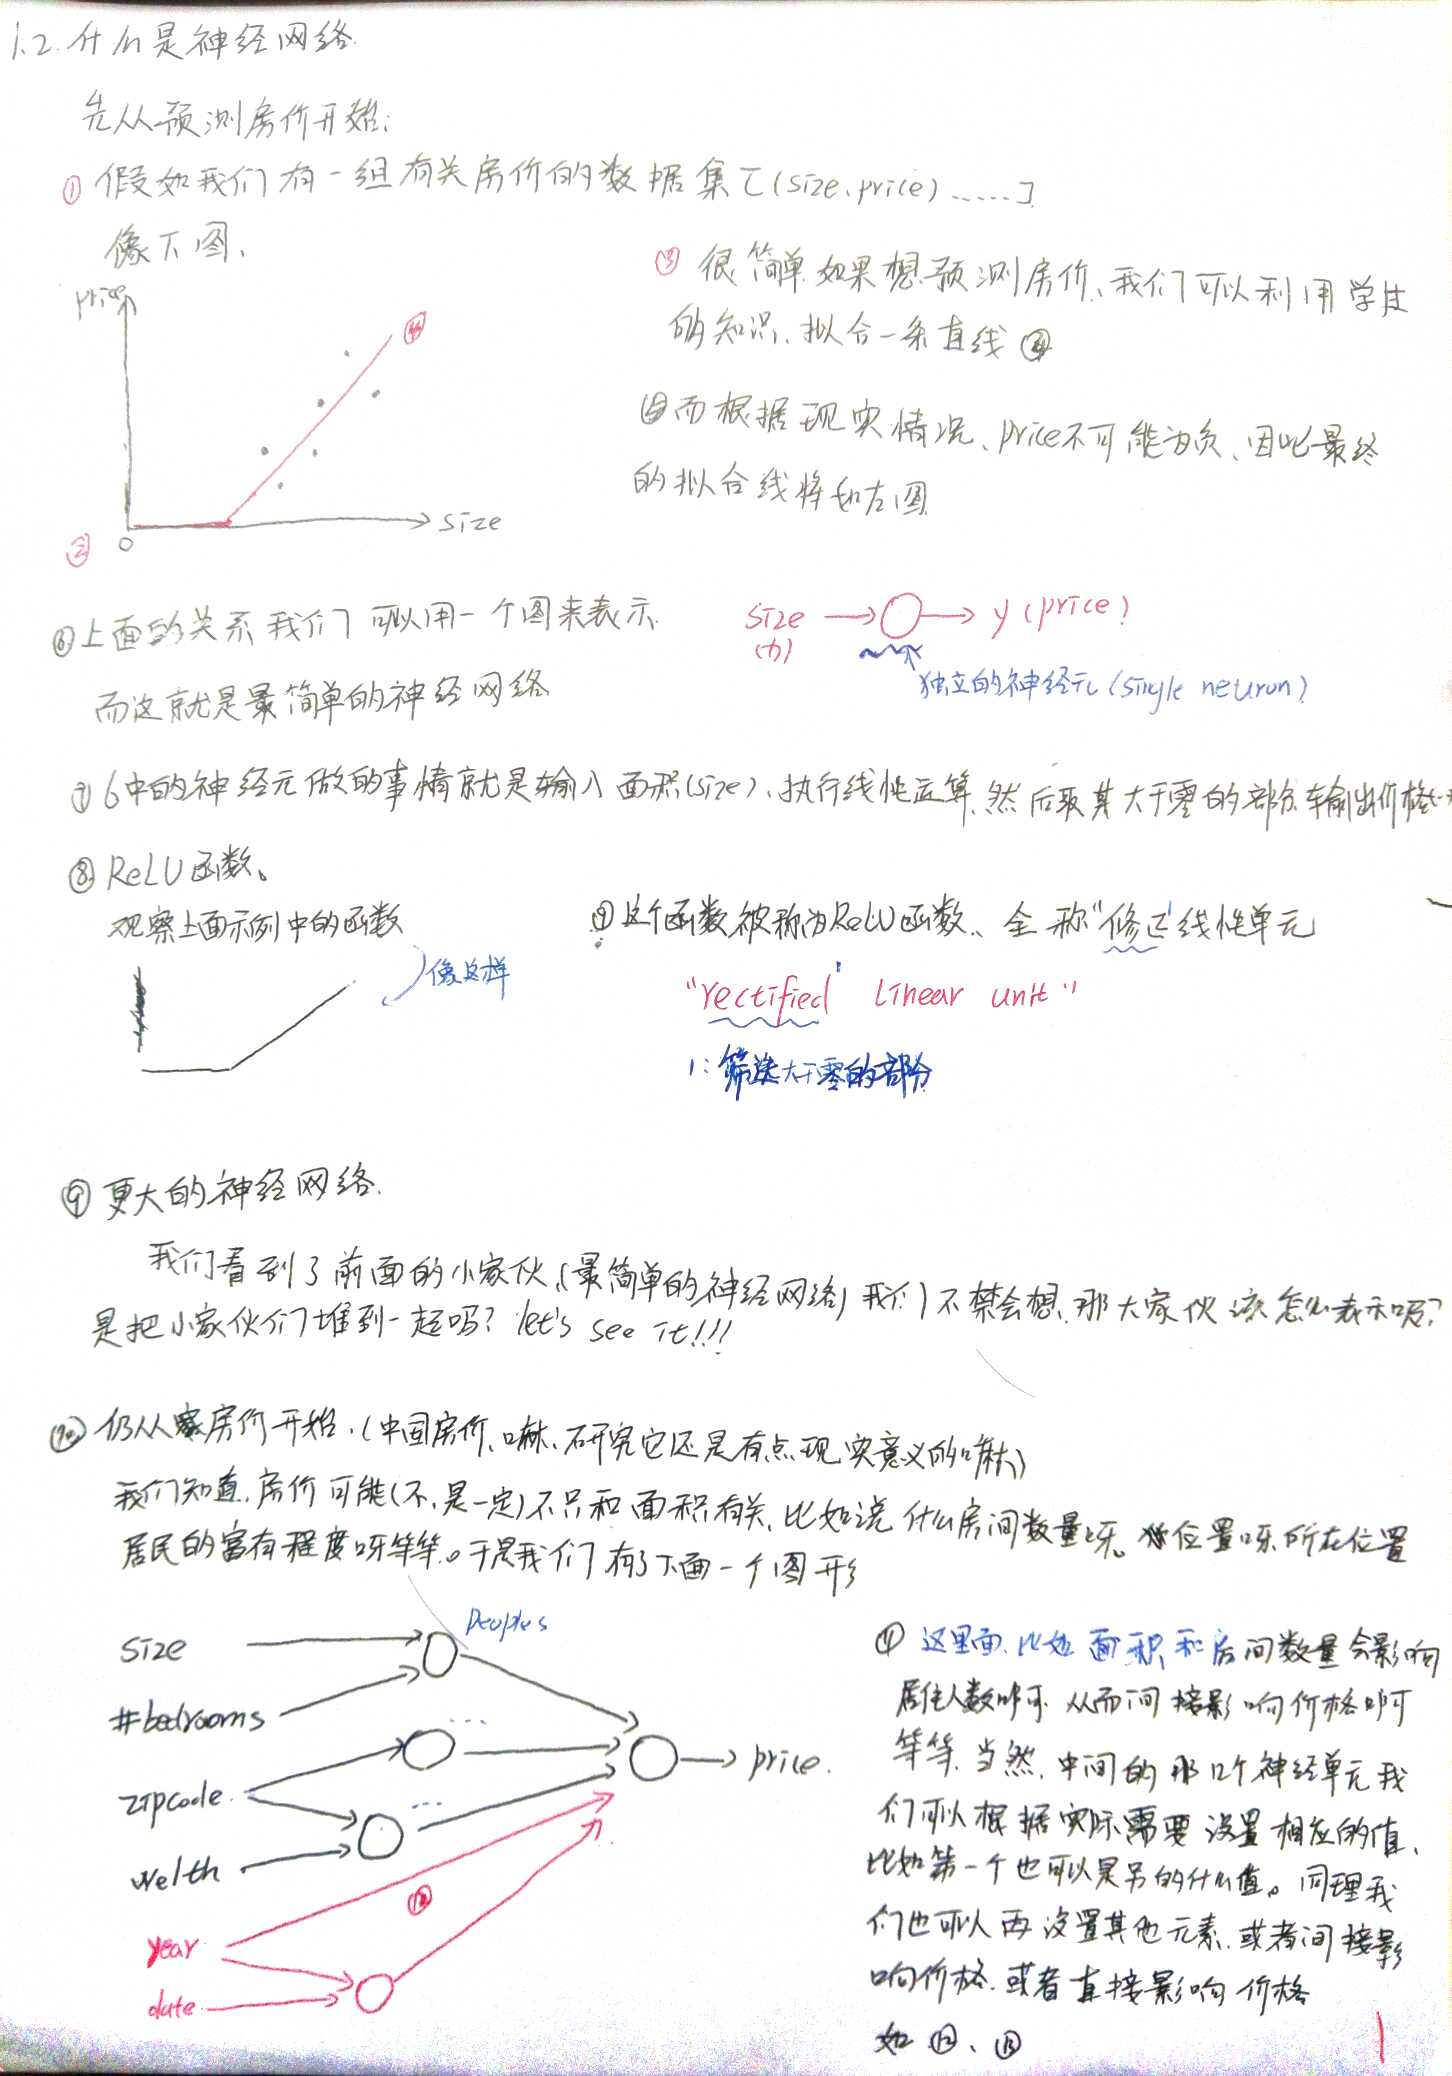 1.2.什么是神经网络.
先从预测房价开始:
① 假如我们有一组有关房价的数据集[(size,price)......]
像下图、
price
④
size
0
②
③ 很简单如果想预测房价、我们可以利用学过
的知识、拟合一条直线④
⑤而根据现实情况、price不可能为负、因此最终
的拟合线将如左图
⑥上面的关系我们可以用一个图来表示.
而这就是最简单的神经网络
size → → y (price)
独立的神经元(single neuron)
⑦ 6中的神经元做的事情就是输入面积(size)、执行线性运算、然后取其大于零的部分、输出价格
⑧ ReLU函数。
观察上面示例中的函数
像这样
⑨这个函数被称为ReLU函数、全称"修正线性单元
"rectified linear unit"
1: 筛选大于零的部分
⑨ 更大的神经网络.
我们看到了前面的小家伙、(最简单的神经网络)我们不禁会想、那大家伙该怎么表示呢?
是把小家伙们堆到一起吗? let's see it!!!
⑩ 仍从房价开始、(中国房价、嘛、研究它还是有点现实意义的嘛)
我们知道、房价可能(不,是一定)不只和面积有关、比如说什么房间数量呀。位置呀所在位置
居民的富有程度呀等等。于是我们有了下面一个图形
size
Peoples
#bedrooms
...
zipcode.
price.
...
welth
year
date
⑪ 这里面、比如面积和房间数量会影响
居住人数呀 从而间接影响价格呀
等等、当然、中间的那几个神经单元我
们可以根据实际需要设置相应的值、
比如第一个也可以是另的什么值。同理我
们也可以再设置其他元素、或者间接影
响价格、或者直接影响价格
如⑫、⑬
1